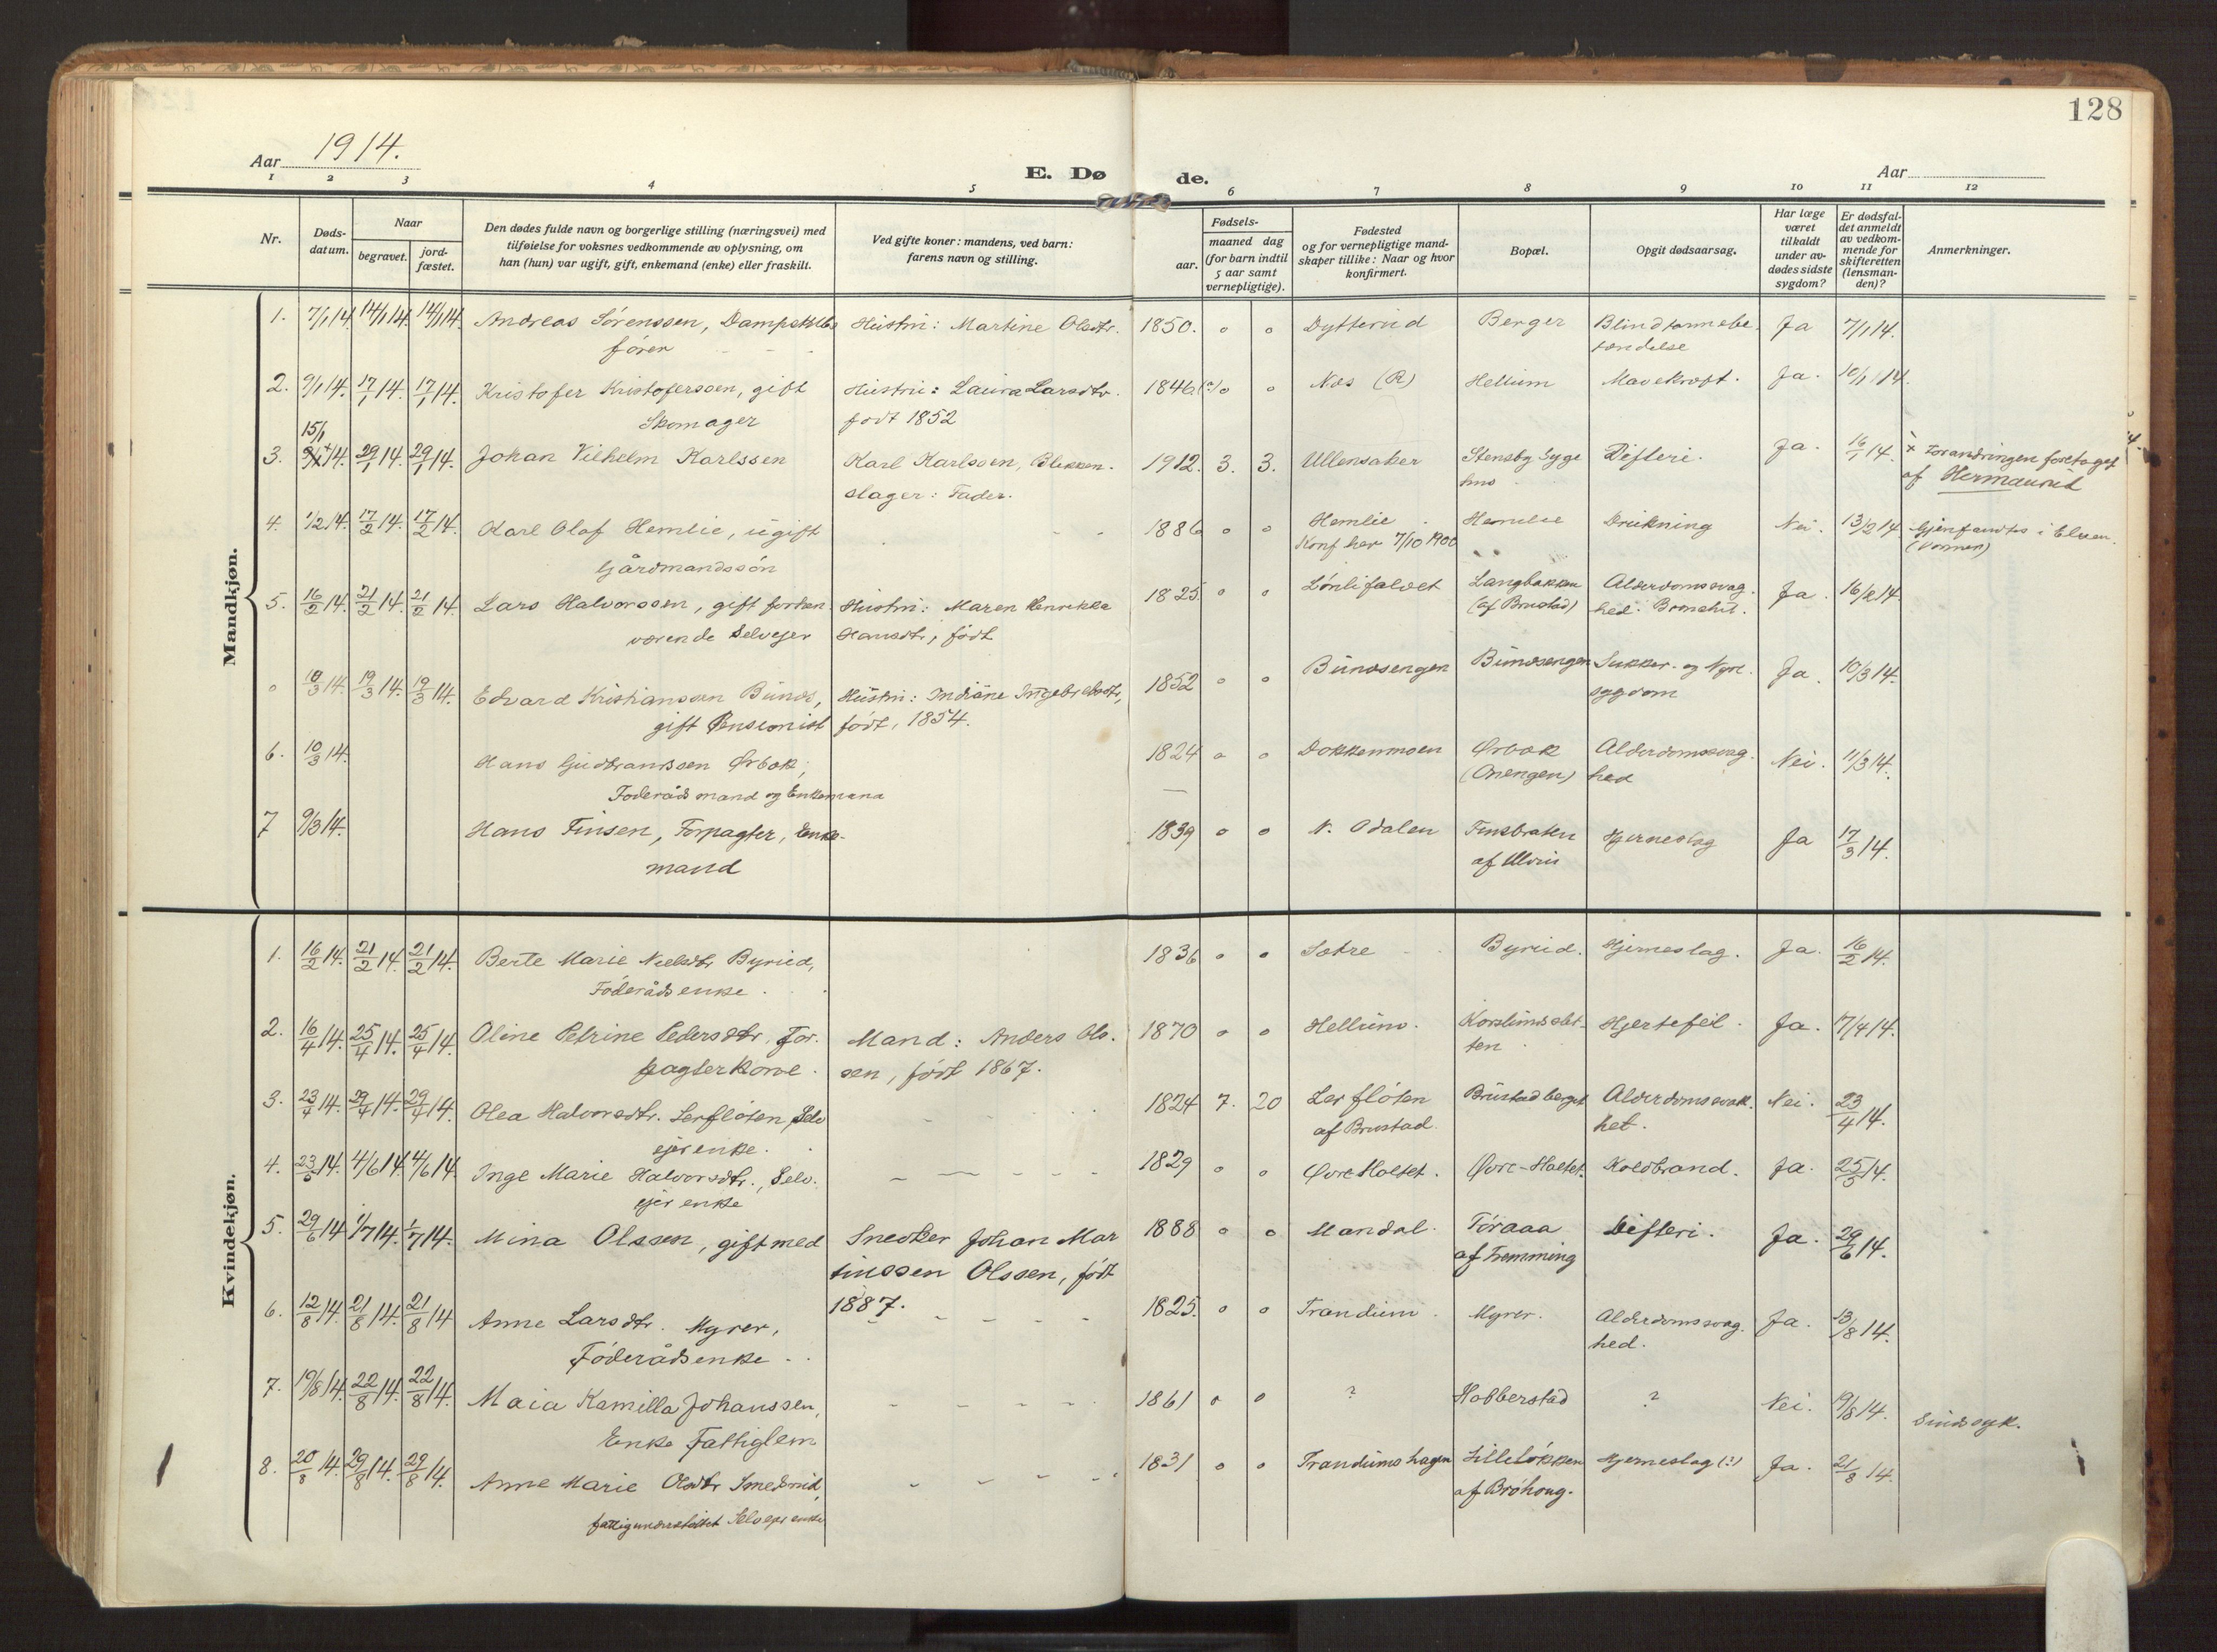 128
Aar 1914.
E. Dø
de.
Aar
1 2 3 4 5 6 7 8 9 10 11 12
Nr.
Døds-
datum.
Naar
begravet.
jord-
fæstet.
Den dødes fulde navn og borgerlige stilling (næringsvei) med
tilføielse for voksnes vedkommende av oplysning, om
han (hun) var ugift, gift, enkemand (enke) eller fraskilt.
Ved gifte koner: mandens, ved barn:
farens navn og stilling.
Fødsels-
aar.
maaned dag
(for barn indtil
5 aar samt
vernepligtige).
Fødested
og for vernepligtige mand-
skaper tillike: Naar og hvor
konfirmert.
Bopæl.
Opgit dødsaarsag.
Har læge
været
tilkaldt
under av-
dødes sidste
sygdom?
Er dødsfal-
det anmeldt
av vedkom-
mende for
skifteretten
(lensman-
den)?
Anmerkninger.
Mandkjøn.
1. 7/1 14. 14/1 14. 14/1 14. Andreas Sørenssen, Dampskibs Hustru: Martine Olsdtr. 1850. o o Dytterud Berger Blindtarmsbe- Ja 7/1 14.
fører tændelse
2. 9/1 14. 17/1 14. 17/1 14. Kristofer Kristofersen, gift Hustru: Laura Larsdtr. 1846(?) o o Nes (R) Hellum Mavekræft. Ja. 10/1 14.
Skomager født 1852
15/1
3. 14. 29/1 14. 29/1 14. Johan Vilhelm Karlssen Karl Karlssen, Blikken- 1912. 3. 3. Ullensaker Stensby Syge Difteri. Ja. 16/1 14. x Forandringen foretaget
slager: Fader. hus af Hermanrud
4. 1/2 14. 17/2 14. 17/2 14. Karl Olaf Hemlie, ugift 1886 o o Hemlie Hemlie Drukning Nei. 13/2 14. Gjenfandtes i Elven.
Gårdmandssøn Konf her 7/10 1900 (Vormen)
5. 16/2 14. 21/2 14. 21/2 14. Lars Halvorssen, gift forhen Hustru: Maren Henrikke 1825. o o Lønlifaldet Langbakken Alderdomssvag- Ja. 16/2 14.
værende Selveier Hansdtr, født (af Brustad) hed.
o 10/3 14. 19/3 14. 19/3 14. Edvard Kristianssen Bunds, Hustru: Indiane Ingebretsdtr, 1852 o o Bundsengen Bundsengen Sukker- og Nyre- Ja. 10/3 14.
gift Pensionist født, 1854. sygdom
6. 10/3 14. Hans Gudbrandssen Ørbæk, 1824 o o Dokkenmoen Ørbæk Alderdomssvag- Nei. 11/3 14.
Foderåds mand og Enkemand (Onengen) hed
7 9/3 14. Hans Finsen, Forpagter, Enke- 1839 o o N. Odalen Finsbraten Hjerneslag Ja 17/3 14.
mand af Ulvin
Kvindekjøn.
1. 16/2 14. 21/2 14. 21/2 14. Berte Marie Neelsdtr Byrud, 1836 o o Sætre Byrud. Hjerneslag. Ja. 16/2 14.
Føderåds enke.
2. 16/4 14. 25/4 14. 25/4 14. Oline Petrine Pedersdtr, For- Mand: Anders Ols- 1870 o o Hellum. Korslundslet- Hjertefeil. Ja. 17/4 14.
pagterkone. sen, født 1867. ten
3. 23/4 14. 29/4 14. 29/4 14. Olea Halvorsdtr. Lerfløten, Selv 1824 7. 20 Lerfløten Brustadberget Alderdomssvak- Nei. 23/4 14.
ejer enke. af Brustad. het.
4. 23/5 14. 4/6 14. 4/6 14. Inge Marie Halvorsdtr., Selv- 1829 o o Øvre Holtet. Øvre-Holtet. Koldbrand. Ja. 25/5 14.
ejer enke
5. 29/6 14. 1/7 14. 1/7 14. Mina Olssen, gift med Snedker Johan Mar 1888 o o Mandal. Töraaa Difteri. Ja. 29/6 14.
tinssen Olssen, født af Fremming
6. 12/8 14. 21/8 14. 21/8 14 Anne Larsdtr. Myrer, 1887. 1825. o o Trandum. Myrer. Alderdomssvag- Ja. 13/8 14.
Føderådsenke hed.
7. 19/8 14. 22/8 14. 22/8 14. Maia Kamilla Johanssen, 1861 o o ? Habberstad ? Nei. 19/8 14. Sindssyk.
Enke Fattiglem
8. 20/8 14. 29/8 14. 29/8 14. Anne Marie Olsdtr Smedsrud, 1831 o o Trandums hagen Lilleløkken Hjerneslag (?) Ja. 21/8 14.
fattigunderstøttet Selvejer enke af Brøhaug.